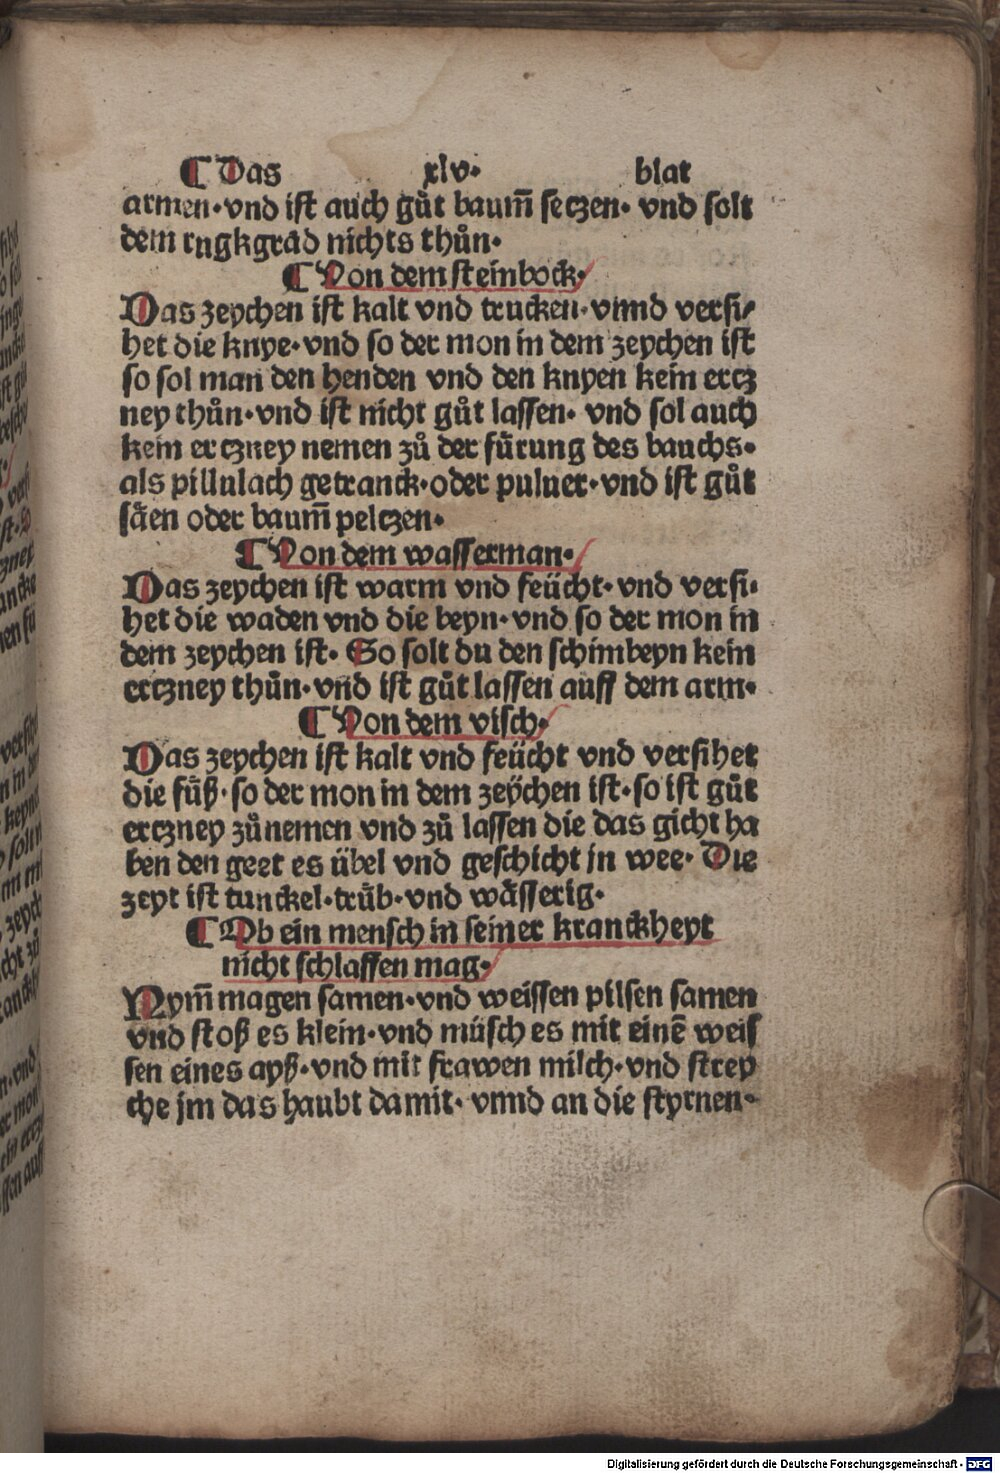 ¶ Das xlv· blat
armen·vnd iſt auch gůt baum̄ ſeczen· vnd ſolt
dem rugkgrad nichts thůn·
¶ Von dem ſteinbock·
Das zeychen iſt kalt vnd trucken·vnnd verſi⸗
het die knye·vnd ſo der mon in dem zeychen iſt
ſo ſol man den henden vnd den knyen kein ercz
ney thůn·vnd iſt nicht gůt laſſen· vnd ſol auch
kein erczney nemen zů der fürung des bauchs·
als pillulach getranck·oder puluer·vnd iſt gůt
ſäen oder baum̄ pelczen·
¶ Von dem waſſerman·
Das zeychen iſt warm vnd feücht·vnd verſi·
het die waden vnd die beyn·vnd ſo der mon in
dem zeychen iſt· So ſolt du den ſchinbeyn kein
erczney thůn·vnd iſt gůt laſſen auff dem arm·
¶ Von dem viſch·
Das zeychen iſt kalt vnd feücht vnd verſihet
die füß·ſo der mon in dem zeÿchen iſt·ſo iſt gůt
erczney zůnemen vnd zů laſſen die das gicht ha
ben den geet es übel vnd geſchicht jn wee· Die
zeyt iſt tunckel·trüb·vnd wäſſerig·
¶ Ob ein menſch in ſeiner kranckheyt
nicht ſchlaffen mag·
Nym̄ magen ſamen·vnd weiſſen pilſen ſamen
vnd ſtoß es klein·vnd müſch es mit einē weiſ
ſen eines ayß·vnd mit frawen milch·vnd ſtrey
che jm das haubt damit· vnnd an die ſtyrnen·
Digitalisierung gefördert durch die Deutsche Forschungsgemeinschaft - DFG